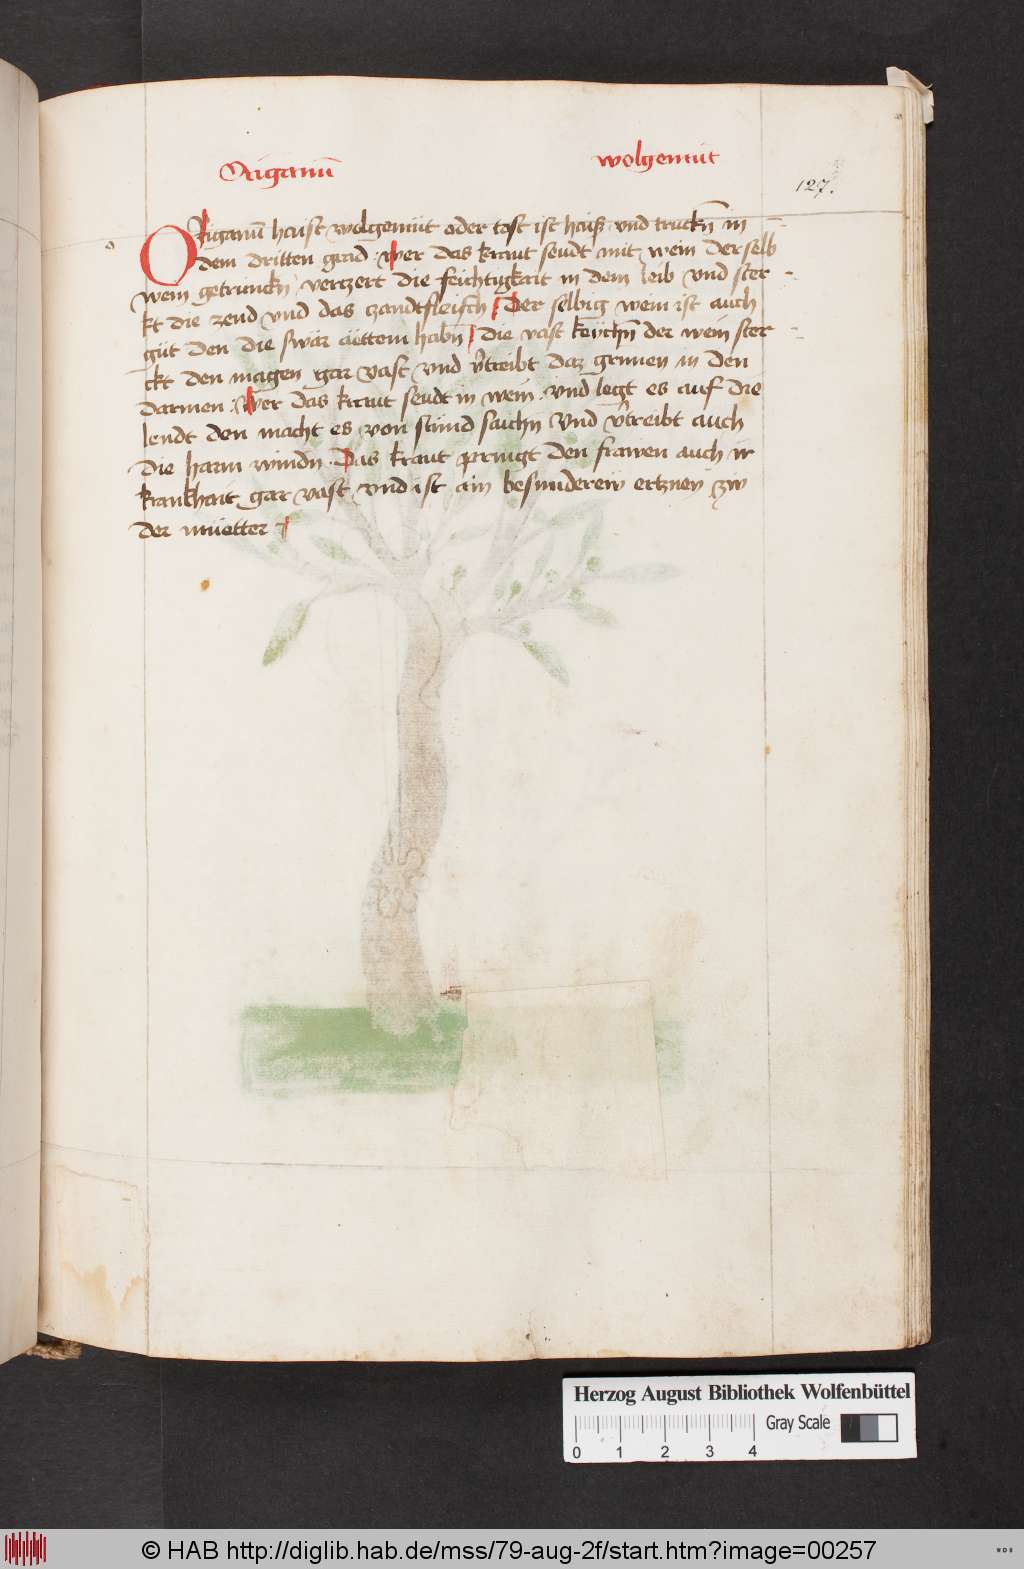 Origanū wolgemüt
127.
ORiganū haist wolgemüt oder tost ist haiß vnd truckñ in
dem dritten grad · wer das kraut seudt mit wein derselb
wein getrunckñ verczert die feichtigkait in dem leib vnd ster
kt die zend vnd das czandtfleisch Der selbig wein ist auch
güt den die swär ättem habñ Die vast keychñ der wein ster
ckt den magen gar vast vnd v̄treibt daz grimen in den
darmen · Wer das kraut seudt in wein · vnd legt es auf die
lendt den macht es von stund saichñ vnd v̄treibt auch
die harm windñ · Das kraut pringt den frawen auch ir
krankhait gar vast vnd ist ain besunderew ertzney zw
der müetter
Herzog August Bibliothek Wolfenbüttel
Gray Scale
0 1 2 3 4
© HAB http://diglib.hab.de/mss/79-aug-2f/start.htm?image=00257